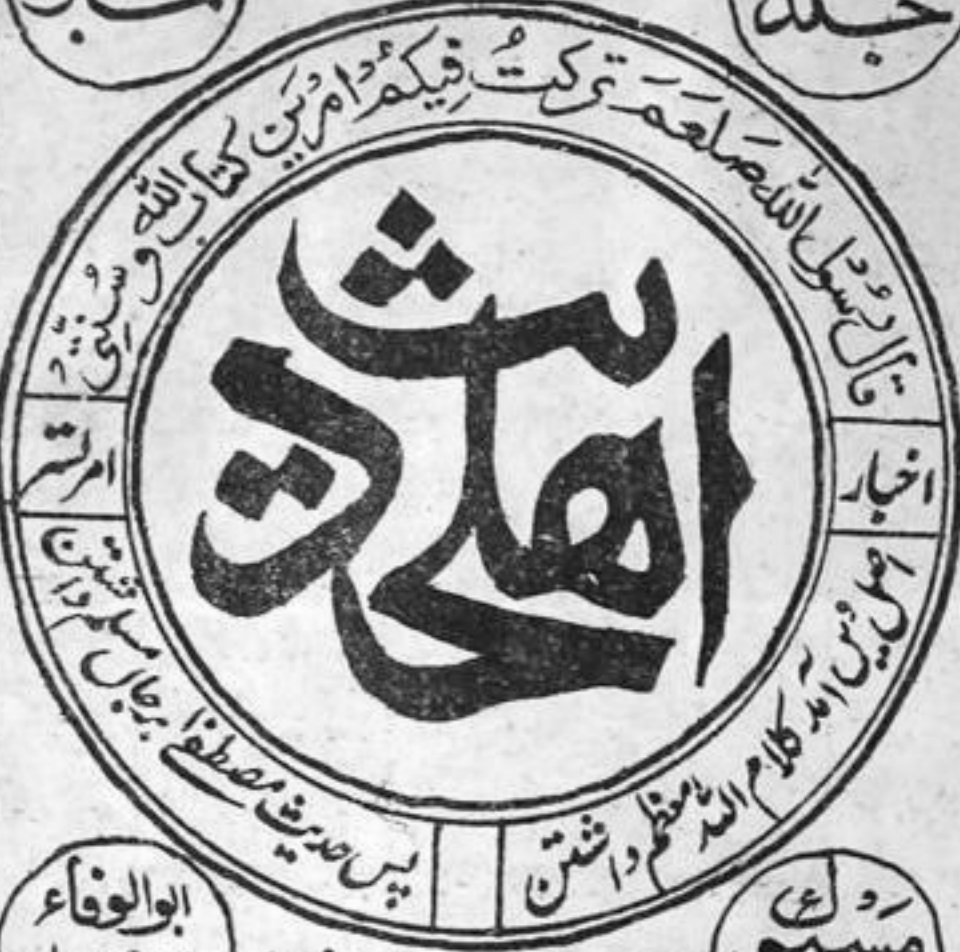 جلد
قال رسول الله صلعم تركت فيكم امرين كتاب الله و سنتي
اهلحدیث
اخبار
امرتسر
اصل دین آمد کلام اللہ معظم داشتن
پس حدیث مصطفےٰ برجاں مسلم داشتن
ابوالوفاء